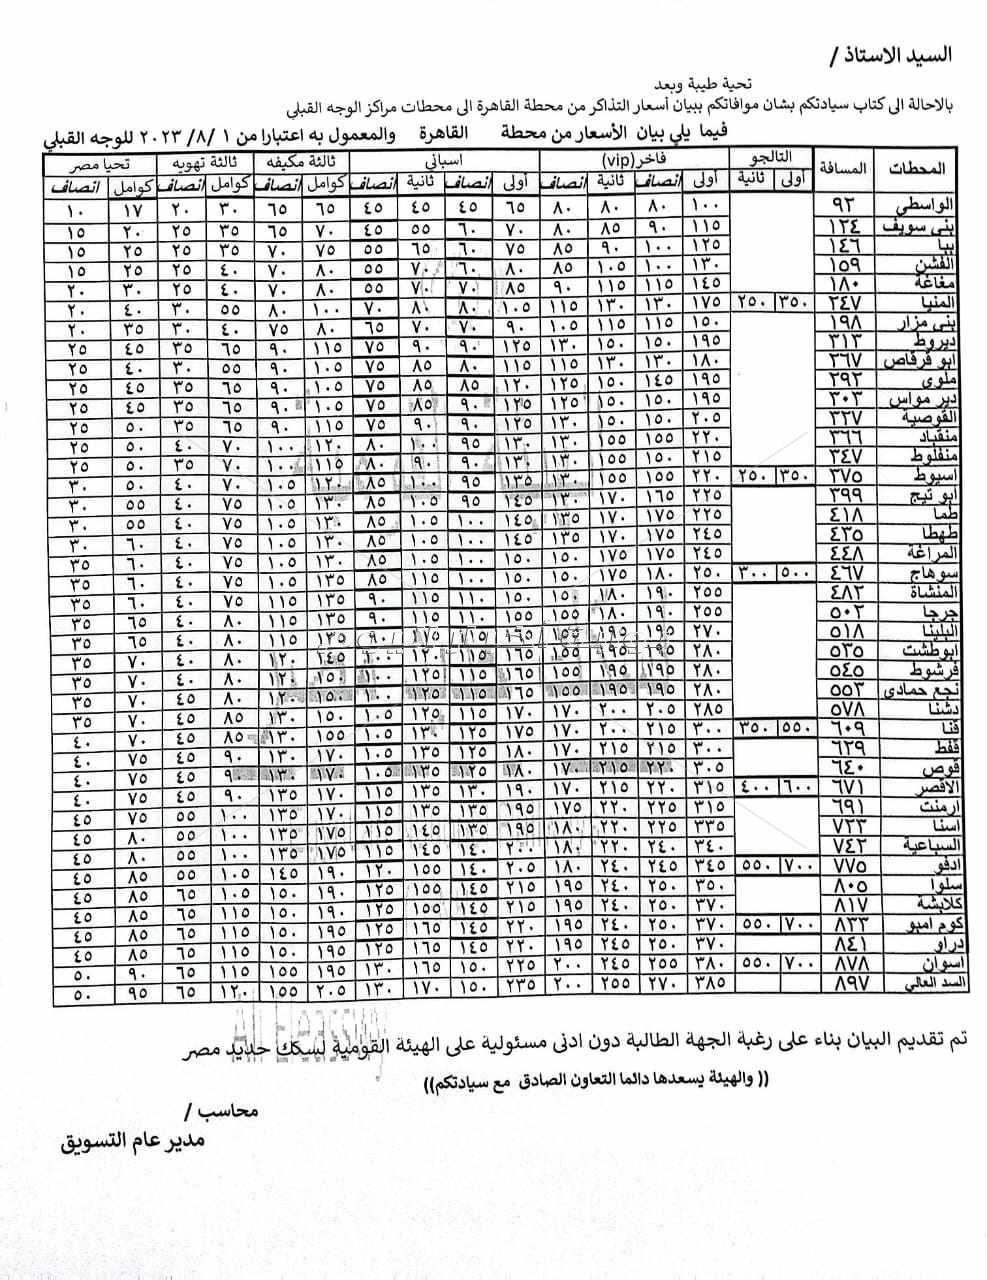 السيد الاستاذ /
تحية طيبة وبعد
بالاحالة الى كتاب سيادتكم بشان موافاتكم ببيان أسعار التذاكر من محطة القاهرة الى محطات مراكز الوجه القبلي
فيما يلي بيان الأسعار من محطة القاهرة والمعمول به اعتبارا من ١ /٨/ ٢٠٢٣ للوجه القبلي
المحطات المسافة التالجو فاخر(vip) اسباني ثالثة مكيفه ثالثة تهويه تحيا مصر
أولى ثانية أولى انصاف ثانية انصاف أولى انصاف ثانية انصاف كوامل انصاف كوامل انصاف كوامل انصاف
الواسطي ٩٢ ١٠٠ ٨٠ ٨٠ ٨٠ ٦٥ ٤٥ ٤٥ ٤٥ ٦٥ ٦٥ ٣٠ ٢٠ ١٧ ١٠
بنى سويف ١٢٤ ١١٥ ٩٠ ٨٥ ٨٠ ٧٠ ٦٠ ٥٥ ٤٥ ٧٠ ٦٥ ٣٥ ٢٥ ٢٠ ١٥
ببا ١٤٦ ١٢٥ ١٠٠ ٩٠ ٨٥ ٧٥ ٦٠ ٦٥ ٥٥ ٧٥ ٧٠ ٣٥ ٢٥ ٢٥ ١٥
الفشن ١٥٩ ١٣٠ ١٠٠ ١٠٥ ٨٥ ٨٠ ٦٠ ٧٠ ٥٥ ٨٠ ٧٠ ٤٠ ٢٥ ٢٥ ١٥
مغاغة ١٨٠ ١٤٥ ١١٥ ١١٥ ٩٠ ٨٥ ٧٠ ٧٠ ٥٥ ٨٠ ٧٠ ٤٠ ٢٥ ٣٠ ٢٠
المنيا ٢٤٧ ٣٥٠ ٢٥٠ ١٧٥ ١٣٠ ١٣٠ ١١٥ ١٠٥ ٨٠ ٨٠ ٧٠ ١٠٠ ٨٠ ٥٥ ٣٠ ٤٠ ٢٠
بنى مزار ١٩٨ ١٥٠ ١١٥ ١١٥ ١٠٥ ٩٠ ٧٠ ٧٠ ٦٥ ٨٠ ٧٥ ٤٠ ٣٠ ٣٥ ٢٠
ديروط ٣١٣ ١٩٥ ١٥٠ ١٥٠ ١٣٠ ١٢٥ ٩٠ ٩٠ ٧٥ ١١٥ ٩٠ ٦٥ ٣٥ ٤٥ ٢٥
ابو قرقاص ٢٦٧ ١٨٠ ١٣٠ ١٣٠ ١١٥ ١١٥ ٨٠ ٨٥ ٧٥ ١٠٥ ٩٠ ٥٥ ٣٠ ٤٠ ٢٥
ملوى ٢٩٢ ١٩٥ ١٤٥ ١٥٠ ١٢٥ ١٢٠ ٨٥ ٨٥ ٧٥ ١٠٥ ٩٠ ٦٥ ٣٥ ٤٥ ٢٥
دير مواس ٣٠٣ ١٩٥ ١٥٠ ١٥٠ ١٢٥ ١٢٥ ٩٠ ٨٥ ٧٥ ١٠٥ ٩٠ ٦٥ ٣٥ ٤٥ ٢٥
القوصية ٣٢٧ ٢٠٥ ١٥٠ ١٥٠ ١٣٠ ١٢٥ ٩٠ ٩٠ ٧٥ ١١٥ ٩٠ ٦٥ ٣٥ ٥٠ ٢٥
منقباد ٣٦٦ ٢٢٠ ١٥٥ ١٥٥ ١٣٠ ١٣٠ ٩٥ ١٠٠ ٨٠ ١٢٠ ١٠٠ ٧٠ ٤٠ ٥٠ ٢٥
منفلوط ٣٤٧ ٢١٥ ١٥٠ ١٥٥ ١٣٠ ١٣٠ ٩٠ ٩٠ ٨٠ ١١٥ ١٠٠ ٧٠ ٣٥ ٥٠ ٢٥
اسيوط ٣٧٥ ٣٥٠ ٢٥٠ ٢٢٠ ١٥٥ ١٥٥ ١٣٠ ١٣٥ ٩٥ ١٠٠ ٨٥ ١٢٠ ١٠٥ ٧٠ ٤٠ ٥٠ ٣٠
ابو تيج ٣٩٩ ٢٢٥ ١٦٥ ١٧٠ ١٣٠ ١٤٥ ٩٥ ١٠٥ ٨٥ ١٣٠ ١٠٥ ٧٥ ٤٠ ٥٥ ٣٠
طما ٤١٨ ٢٢٥ ١٧٥ ١٧٠ ١٣٥ ١٤٥ ١٠٠ ١٠٥ ٨٥ ١٣٠ ١٠٥ ٧٥ ٤٠ ٥٥ ٣٠
طهطا ٤٣٥ ٢٤٥ ١٧٥ ١٧٠ ١٣٥ ١٤٥ ١٠٠ ١٠٥ ٨٥ ١٣٠ ١٠٥ ٧٥ ٤٠ ٦٠ ٣٠
المراغة ٤٤٨ ٢٤٥ ١٧٥ ١٧٥ ١٥٠ ١٥٠ ١٠٠ ١٠٥ ٨٥ ١٣٠ ١٠٥ ٧٥ ٤٠ ٦٠ ٣٥
سوهاج ٤٦٧ ٥٠٠ ٣٠٠ ٢٥٠ ١٨٠ ١٧٥ ١٥٠ ١٥٠ ١٠٠ ١١٥ ٨٥ ١٣٥ ١٠٥ ٧٥ ٤٠ ٦٠ ٣٥
المنشاة ٤٨٢ ٢٥٥ ١٩٠ ١٨٠ ١٥٠ ١٥٠ ١١٠ ١١٥ ٩٠ ١٣٥ ١١٥ ٧٥ ٤٠ ٦٠ ٣٥
جرجا ٥٠٢ ٢٥٥ ١٩٠ ١٨٠ ١٥٥ ١٥٥ ١١٠ ١١٥ ٩٠ ١٣٥ ١١٥ ٨٠ ٤٠ ٦٥ ٣٥
البلينا ٥١٨ ٢٧٠ ١٩٥ ١٩٥ ١٥٥ ١٦٥ ١١٥ ١١٥ ٩٠ ١٣٥ ١١٥ ٨٠ ٤٠ ٦٥ ٣٥
ابوطشت ٥٣٥ ٢٨٠ ١٩٥ ١٩٥ ١٥٥ ١٦٥ ١١٥ ١٢٠ ١٠٠ ١٤٥ ١٢٠ ٨٠ ٤٠ ٧٠ ٣٥
فرشوط ٥٤٥ ٢٨٠ ١٩٥ ١٩٥ ١٥٥ ١٦٥ ١١٥ ١٢٥ ١٠٠ ١٥٠ ١٢٠ ٨٠ ٤٠ ٧٠ ٣٥
نجع حمادى ٥٥٣ ٢٨٠ ١٩٥ ١٩٥ ١٥٥ ١٦٥ ١١٥ ١٢٥ ١٠٠ ١٥٠ ١٢٠ ٨٠ ٤٠ ٧٠ ٣٥
دشنا ٥٧٨ ٢٨٥ ٢٠٥ ٢٠٠ ١٧٠ ١٧٠ ١١٥ ١٢٥ ١٠٥ ١٥٠ ١٣٠ ٨٥ ٤٥ ٧٠ ٣٥
قنا ٦٠٩ ٥٥٠ ٣٥٠ ٣٠٠ ٢١٥ ٢٠٠ ١٧٠ ١٧٥ ١٢٥ ١٣٠ ١٠٥ ١٥٥ ١٣٠ ٨٥ ٤٥ ٧٠ ٤٠
قفط ٦٢٩ ٣٠٠ ٢١٥ ٢١٥ ١٧٠ ١٨٠ ١٢٥ ١٣٥ ١٠٥ ١٧٠ ١٣٠ ٩٠ ٤٥ ٧٥ ٤٠
قوص ٦٤٠ ٣٠٥ ٢٢٠ ٢١٥ ١٧٠ ١٨٠ ١٢٥ ١٣٥ ١٠٥ ١٧٠ ١٣٠ ٩٠ ٤٥ ٧٥ ٤٠
الاقصر ٦٧١ ٦٠٠ ٤٠٠ ٣١٥ ٢٢٠ ٢١٥ ١٧٠ ١٩٠ ١٣٠ ١٣٥ ١١٥ ١٧٠ ١٣٥ ٩٠ ٤٥ ٧٥ ٤٠
ارمنت ٦٩١ ٣١٥ ٢٢٥ ٢٢٠ ١٧٥ ١٩٥ ١٣٥ ١٣٥ ١١٥ ١٧٠ ١٣٥ ١٠٠ ٥٥ ٧٥ ٤٥
اسنا ٧٢٣ ٣٣٥ ٢٢٥ ٢٢٠ ١٨٠ ١٩٥ ١٣٥ ١٤٥ ١١٥ ١٧٥ ١٣٥ ١٠٠ ٥٥ ٨٠ ٤٥
السباعية ٧٤٢ ٣٤٠ ٢٤٠ ٢٢٠ ١٨٠ ٢٠٠ ١٤٠ ١٤٥ ١١٥ ١٧٥ ١٣٥ ١٠٠ ٥٥ ٨٠ ٤٥
ادفو ٧٧٥ ٧٠٠ ٥٥٠ ٣٤٥ ٢٤٥ ٢٤٠ ١٨٠ ٢٠٥ ١٤٠ ١٥٥ ١٢٠ ١٩٠ ١٤٥ ١٠٥ ٥٥ ٨٥ ٤٥
سلوا ٨٠٥ ٣٥٠ ٢٥٠ ٢٤٠ ١٩٥ ٢١٥ ١٤٥ ١٥٥ ١٢٥ ١٩٠ ١٥٠ ١٠٥ ٦٥ ٨٥ ٤٥
كلابشة ٨١٧ ٣٧٠ ٢٥٠ ٢٤٠ ١٩٥ ٢١٥ ١٤٥ ١٥٥ ١٢٥ ١٩٠ ١٥٠ ١١٥ ٦٥ ٨٥ ٤٥
كوم امبو ٨٣٣ ٧٠٠ ٥٥٠ ٣٧٠ ٢٥٠ ٢٤٠ ١٩٥ ٢٢٠ ١٤٥ ١٦٥ ١٢٥ ١٩٠ ١٥٠ ١١٥ ٦٥ ٨٥ ٤٥
دراو ٨٤١ ٣٧٠ ٢٥٠ ٢٤٥ ١٩٥ ٢٢٠ ١٤٥ ١٦٥ ١٢٥ ١٩٥ ١٥٠ ١١٥ ٦٥ ٨٥ ٤٥
اسوان ٨٧٨ ٧٠٠ ٥٥٠ ٣٨٠ ٢٥٥ ٢٤٥ ٢٠٠ ٢٢٥ ١٥٠ ١٦٥ ١٣٠ ١٩٥ ١٥٥ ١١٥ ٦٥ ٩٠ ٥٠
السد العالي ٨٩٧ ٣٨٥ ٢٧٠ ٢٥٥ ٢٠٠ ٢٣٥ ١٥٠ ١٧٠ ١٣٠ ٢٠٥ ١٥٥ ١٢٠ ٦٥ ٩٥ ٥٠
تم تقديم البيان بناء على رغبة الجهة الطالبة دون ادنى مسئولية على الهيئة القومية لسكك حديد مصر
(( والهيئة يسعدها دائما التعاون الصادق مع سيادتكم))
محاسب /
مدير عام التسويق